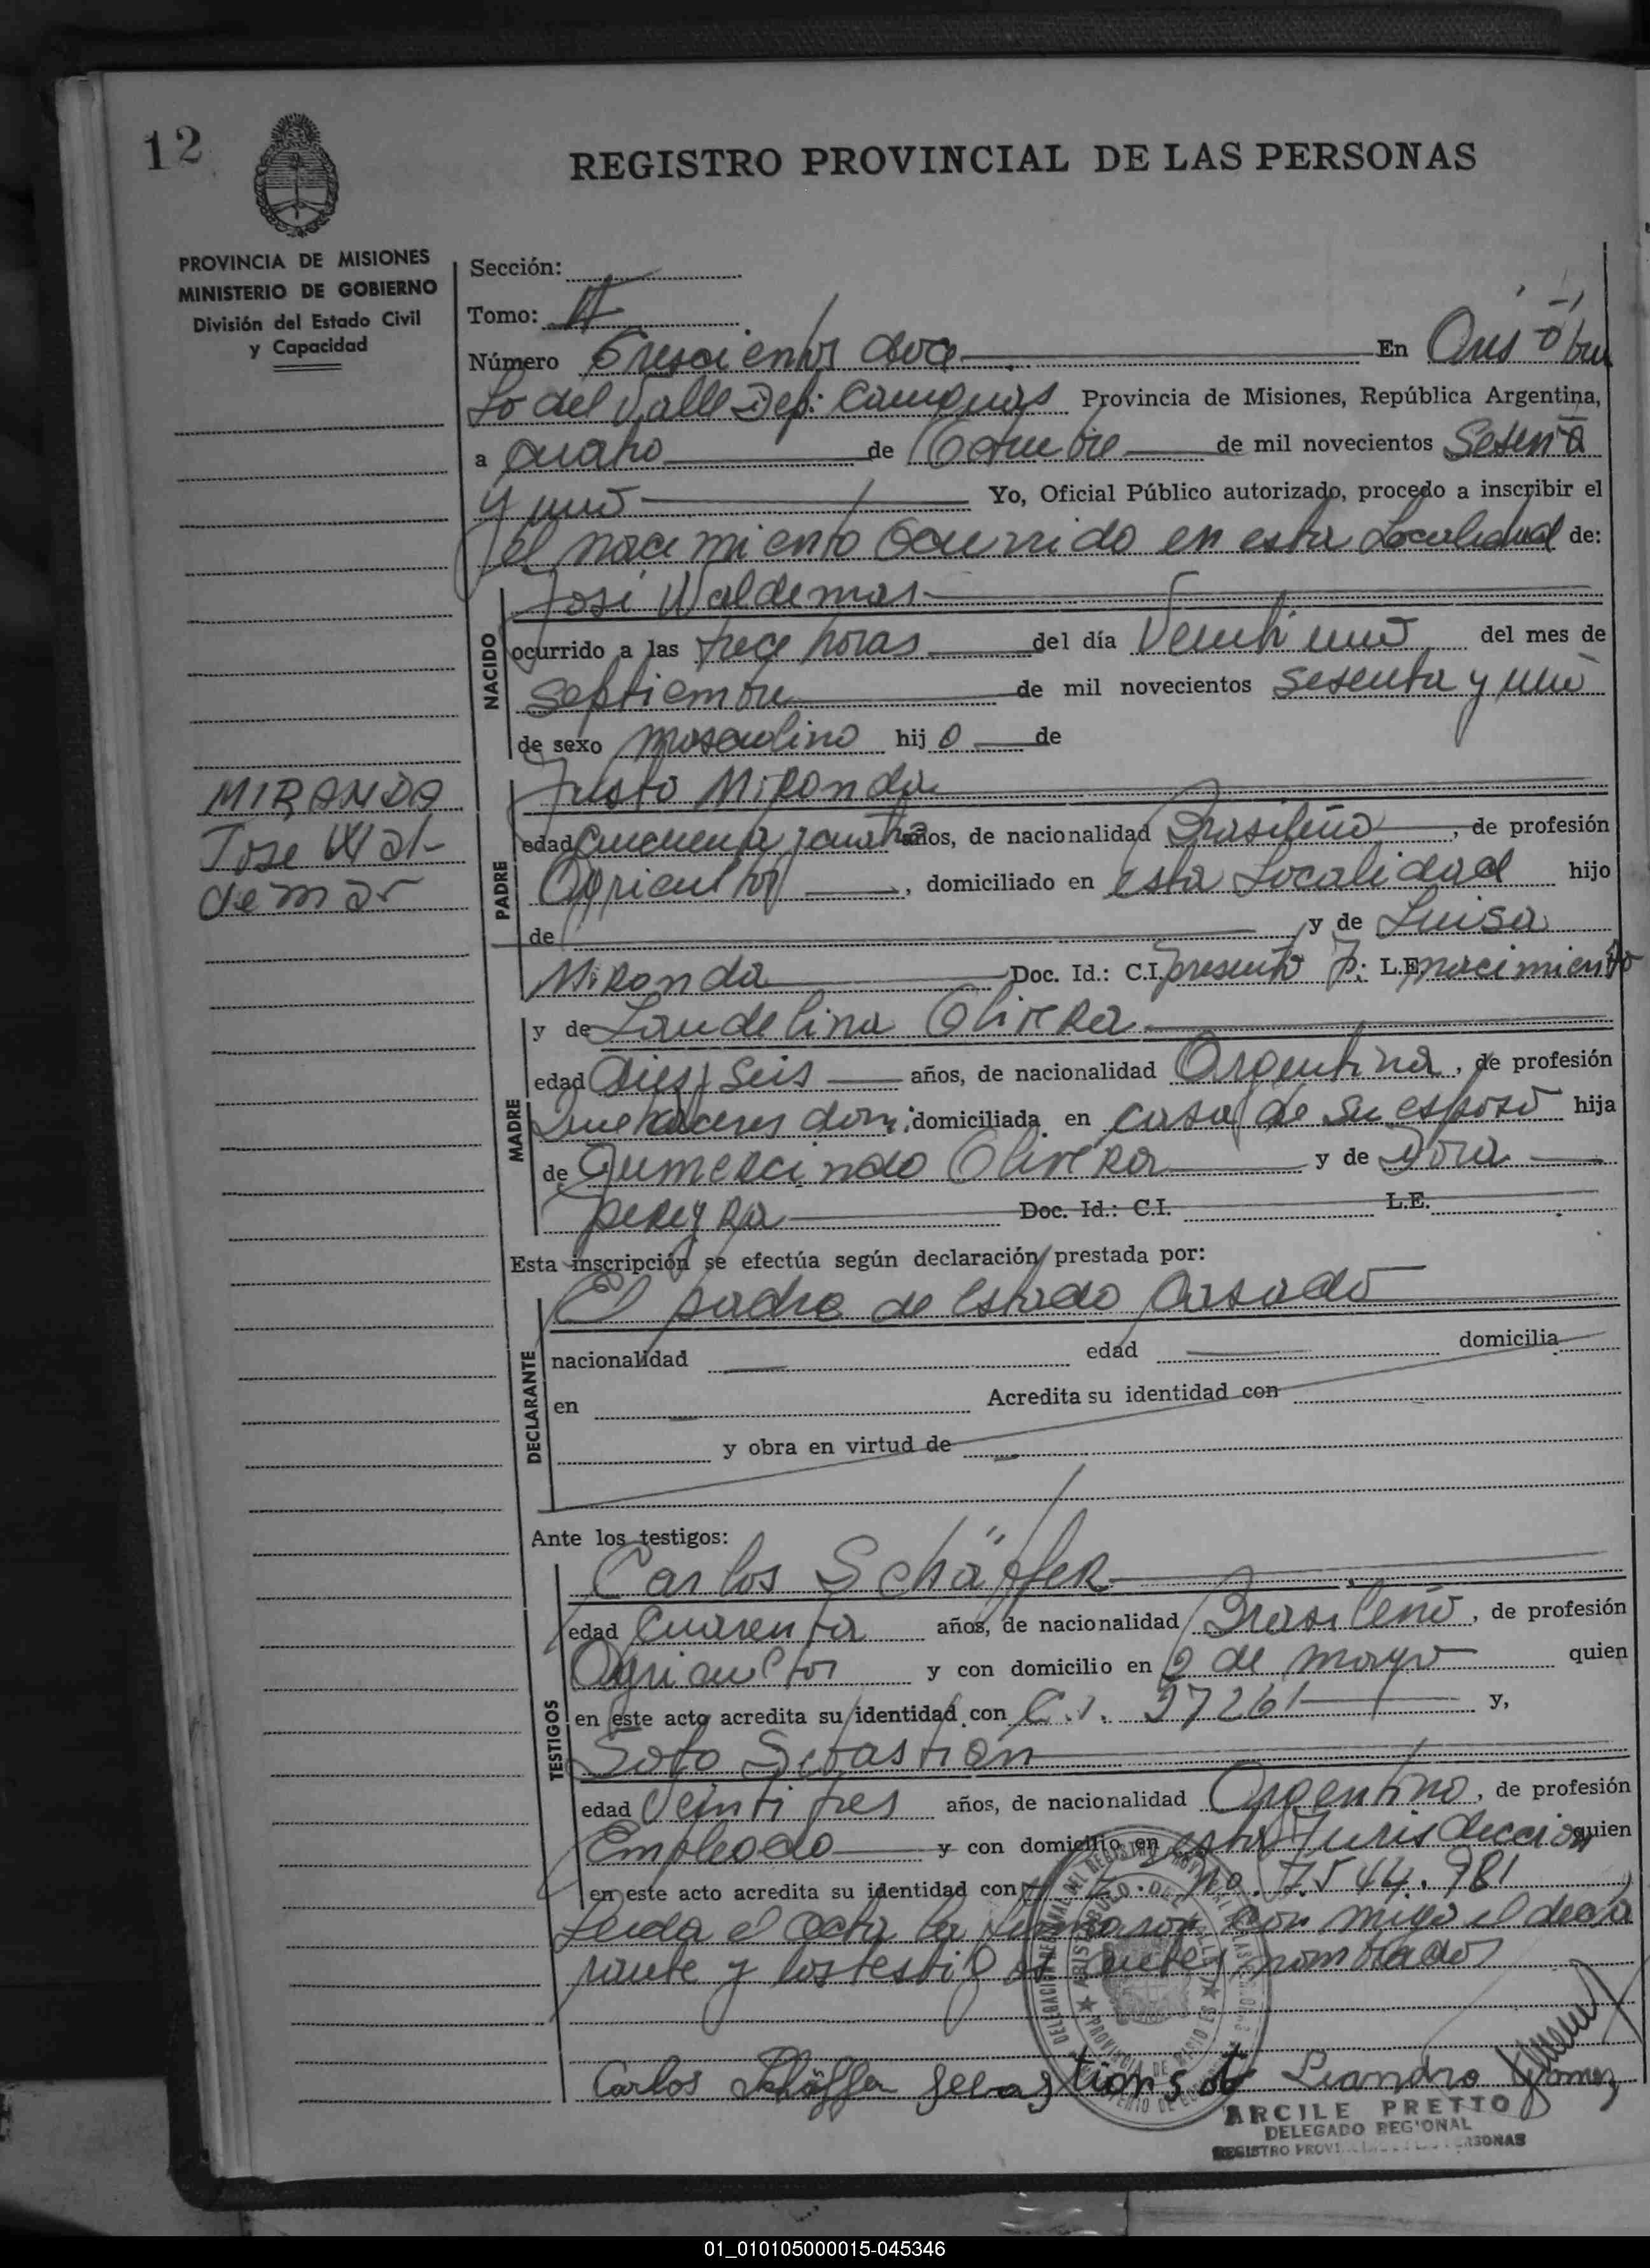 12
REGISTRO PROVINCIAL DE LAS PERSONAS
PROVINCIA DE MISIONES
MINISTERIO DE GOBIERNO
División del Estado Civil
y Capacidad
Sección:
Tomo: II
Número Trescientos doce En Aristóbu
lo del Valle Dep: Cainguás Provincia de Misiones, República Argentina,
a cuatro de Octubre de mil novecientos Sesenta
y uno Yo, Oficial Público autorizado, procedo a inscribir el
el nacimiento Ocurrido en esta Localidad de:
NACIDO
José Waldemar
ocurrido a las trece horas del día Veintiuno del mes de
septiembre de mil novecientos sesenta y uno
de sexo masculino hij o de
MIRANDA
José Wal-
demar
PADRE
Justo Miranda
edad cincuenta y cuatro años, de nacionalidad Brasileño, de profesión
Agricultor, domiciliado en esta Localidad hijo
de y de Luisa
Miranda Doc. Id.: C.I. presento P: L.E. nacimiento
MADRE
y de Laudelina Olivera
edad Diez y Seis años, de nacionalidad Argentina, de profesión
Quehaceres dom: domiciliada en casa de su esposo hija
de Gumercindo Olivera y de Dora
pereyra Doc. Id.: C.I. L.E.
Esta inscripción se efectúa según declaración prestada por:
DECLARANTE
El padre de estado Casado
nacionalidad edad domicilia
en Acredita su identidad con
y obra en virtud de
Ante los testigos:
TESTIGOS
Carlos Schäffer
edad Cuarenta años, de nacionalidad Brasileño, de profesión
Agricultor y con domicilio en 2 de mayo quien
en este acto acredita su identidad con C.I. 37261 y,
Soto Sebastian
edad Veinti tres años, de nacionalidad Argentino, de profesión
Empleado y con domicilio en esta Jurisdiccion quien
en este acto acredita su identidad con No. 7.544.781
Leida el acta la firmaron con migo el decla
rante y los testigos antes nombrados
Carlos Schäffer Sebastian Soto Leandro Gómez
ARCILE PRETTO
DELEGADO REGIONAL
REGISTRO PROVINCIAL DE LAS PERSONAS
01_010105000015-045346